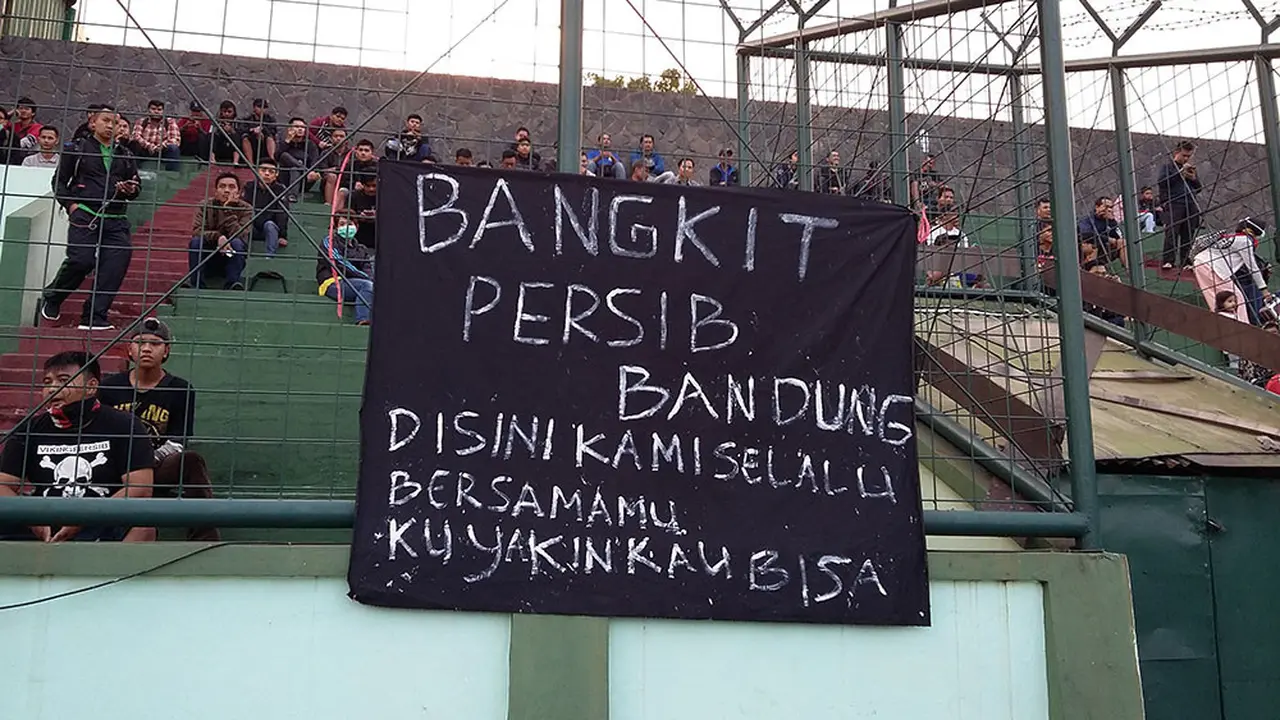 BANGKIT
PERSIB
BANDUNG
DISINI KAMI SELALU
BERSAMAMU
KU YAKIN KAU BISA
VIKING PERSIB